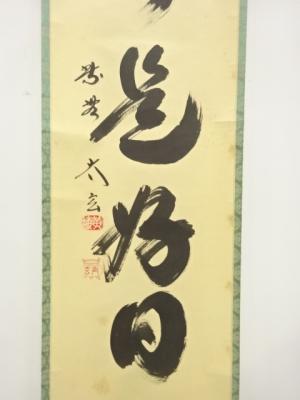 是好日
紫野 太玄